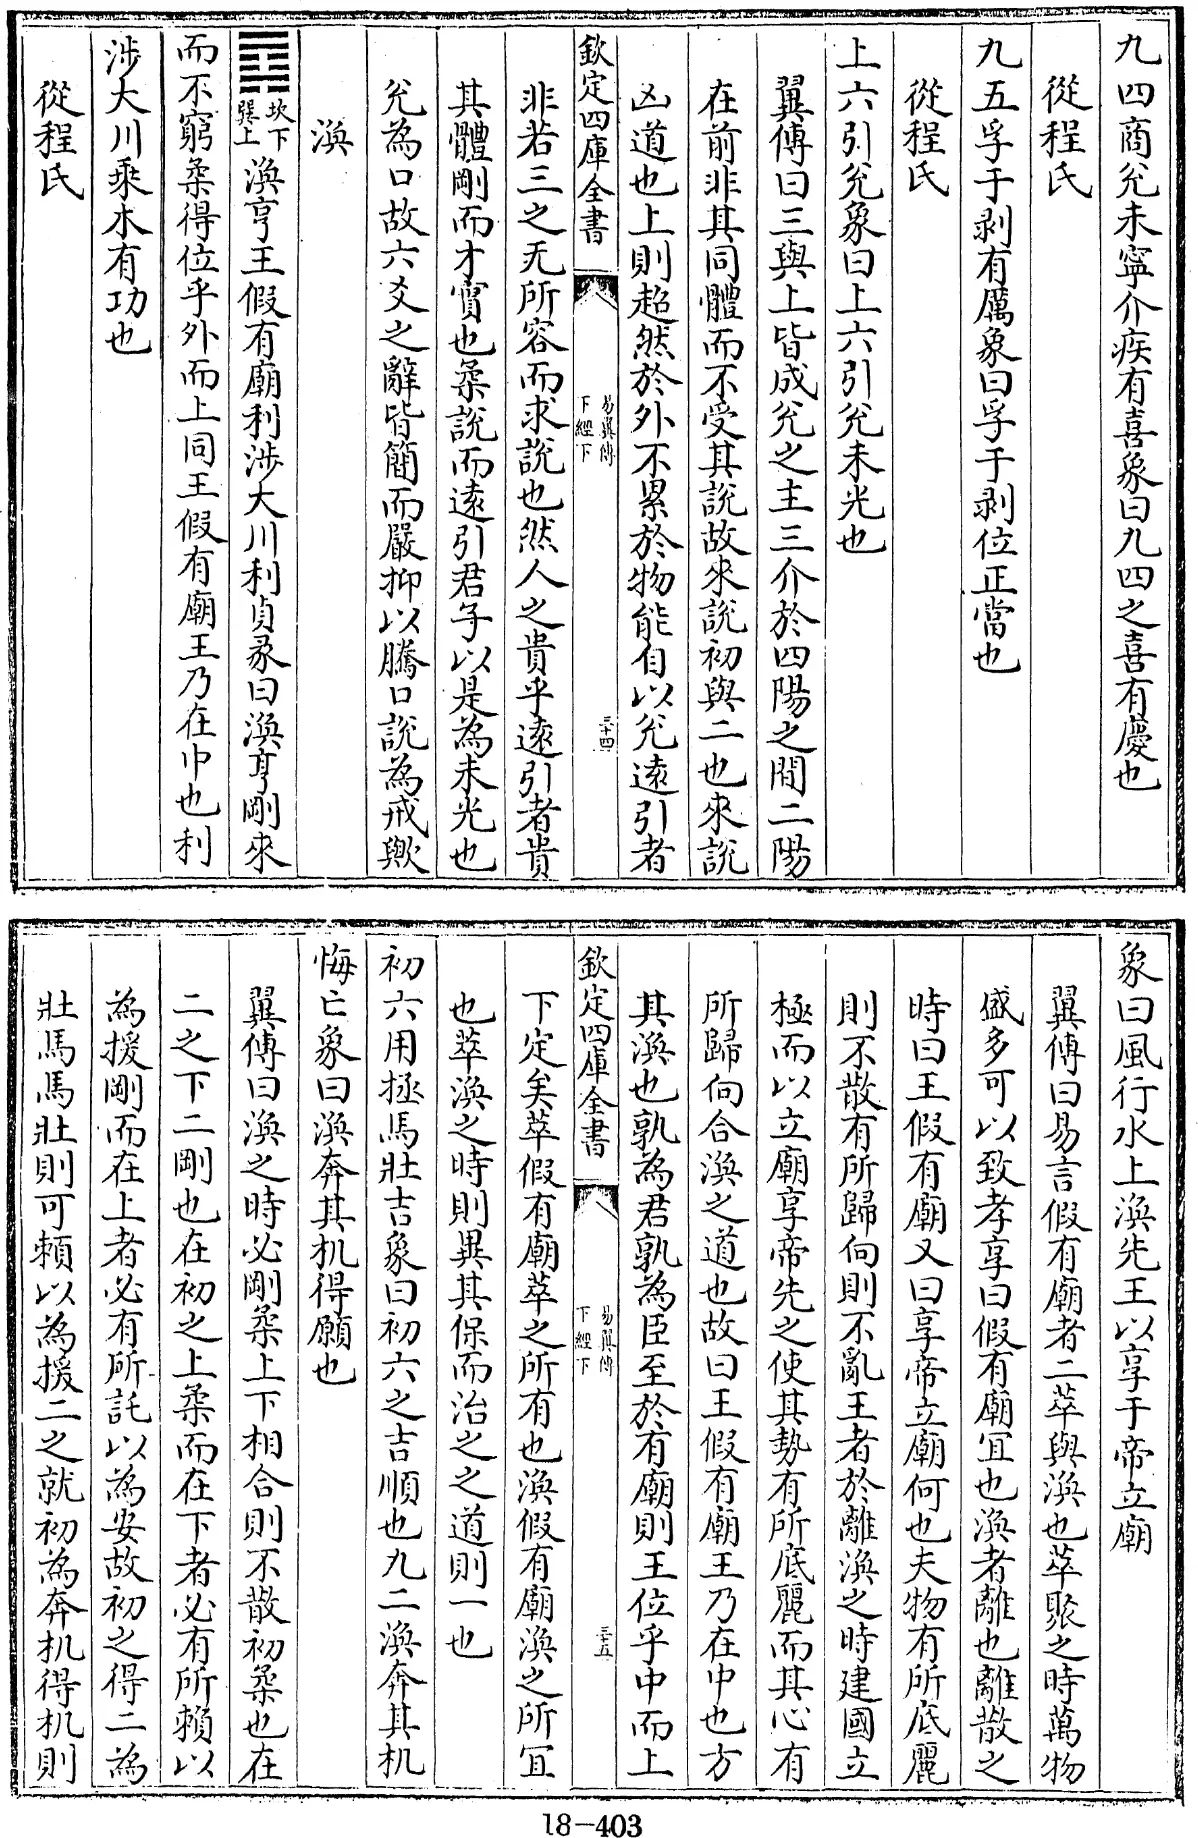 九四商兊未寧介疾有喜象曰九四之喜有慶也
從程氏
九五孚于剥有厲象曰孚于剥位正當也
從程氏
上六引兊象曰上六引兊未光也
翼傳曰三與上皆成兊之主三介於四陽之間二陽
在前非其同體而不受其説故來説初與二也來説
凶道也上則超然於外不累於物能自以兊遠引者
欽定四庫全書
易翼傳
下經下
三十四
非若三之无所容而求説也然人之貴乎遠引者貴
其體剛而才實也柔説而遠引君子以是為未光也
兊為口故六爻之辭皆簡而嚴抑以騰口説為戒歟
渙
䷺
坎下
巽上
渙亨王假有廟利涉大川利貞彖曰渙亨剛來
而不窮柔得位乎外而上同王假有廟王乃在中也利
涉大川乘木有功也
從程氏
象曰風行水上渙先王以享于帝立廟
翼傳曰易言假有廟者二萃與渙也萃聚之時萬物
盛多可以致孝享曰假有廟冝也渙者離也離散之
時曰王假有廟又曰享帝立廟何也夫物有所底麗
則不散有所歸向則不亂王者於離渙之時建國立
極而以立廟享帝先之使其勢有所底麗而其心有
所歸向合渙之道也故曰王假有廟王乃在中也方
其渙也孰為君孰為臣至於有廟則王位乎中而上
欽定四庫全書
易翼傳
下經下
三十五
下定矣萃假有廟萃之所有也渙假有廟渙之所冝
也萃渙之時則異其保而治之之道則一也
初六用拯馬壯吉象曰初六之吉順也九二渙奔其机
悔亡象曰渙奔其机得願也
翼傳曰渙之時必剛柔上下相合則不散初柔也在
二之下二剛也在初之上柔而在下者必有所賴以
為援剛而在上者必有所託以為安故初之得二為
壯馬馬壯則可賴以為援二之就初為奔机得机則
18-403